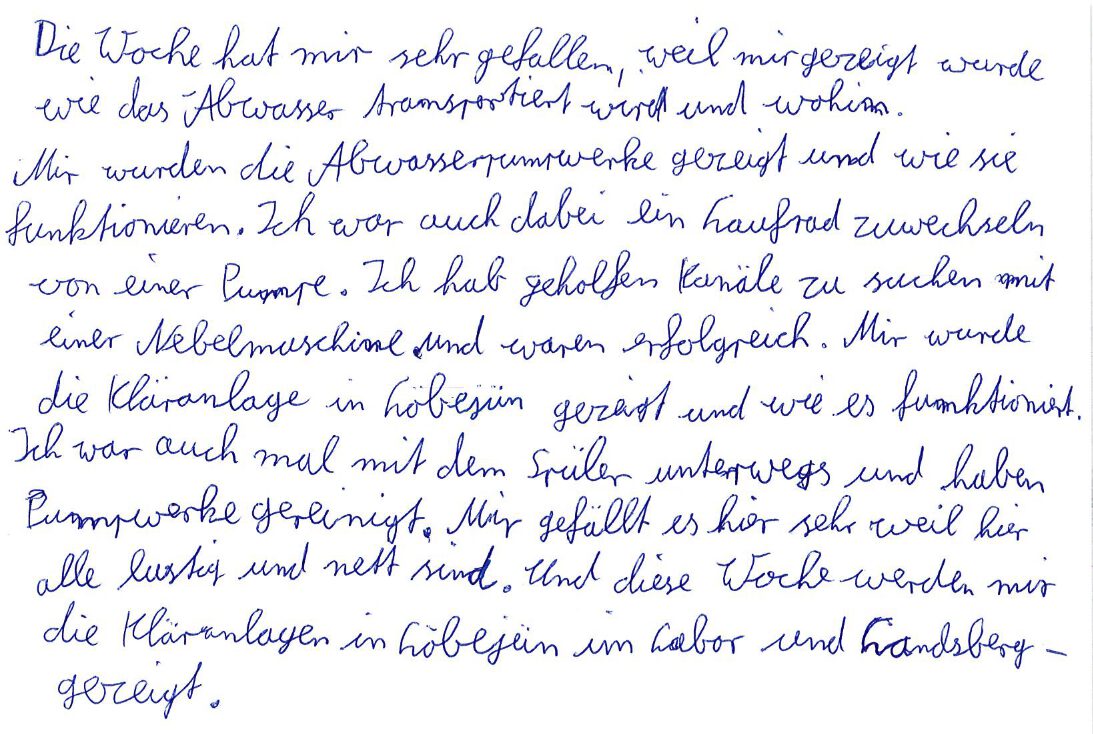 Die Woche hat mir sehr gefallen, weil mir gezeigt wurde
wie das Abwasser transportiert wird und wohin.
Mir wurden die Abwasserpumpwerke gezeigt und wie sie
funktionieren. Ich war auch dabei ein Laufrad zuwechseln
von einer Pumpe. Ich hab geholfen Kanäle zu suchen mit
einer Nebelmaschine und waren erfolgreich. Mir wurde
die Kläranlage in Löbejün gezeigt und wie es funktioniert.
Ich war auch mal mit dem Spüler unterwegs und haben
Pumpwerke gereinigt. Mir gefällt es hier sehr weil hier
alle lustig und nett sind. Und diese Woche werden mir
die Kläranlagen in Löbejün im Labor und Landsberg -
gezeigt.